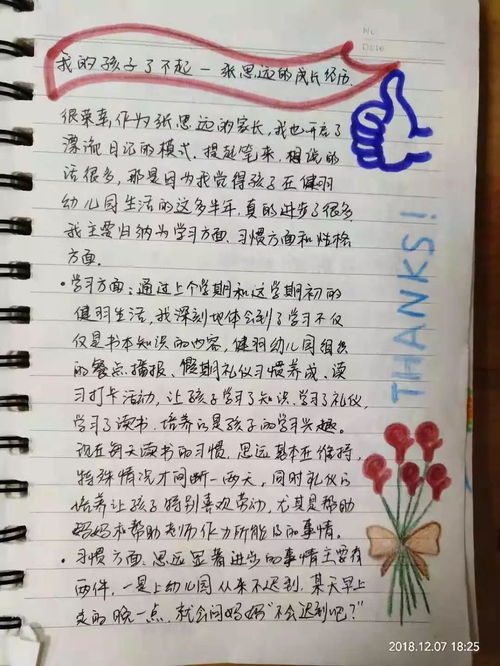 No
Date
我的孩子了不起—张思远的成长经历
很荣幸作为张思远的家长,我也开启了
漂流日记的模式。提起笔来,想说的
话很多,那是因为我觉得孩子在健羽
幼儿园生活的这多半年,真的进步了很多
我主要归纳为学习方面、习惯方面和性格
方面。
·学习方面:通过上个学期和这学期初的
健羽生活,我深刻地体会到了学习不仅
仅是书本知识的内容,健羽幼儿园组织
的餐点播报、假期礼仪习惯养成、读
习打卡活动,让孩子学习了知识,学习了礼仪,
学习了读书,培养的是孩子的学习兴趣。
现在每天读书的习惯,思远基本在维持,
特殊情况才间断一两天,同时礼仪的
培养让孩子特别喜欢劳动,尤其是帮助
妈妈和帮助老师作力所能及的事情。
·习惯方面、思远显著进步的事情主要有
两件,一是上幼儿园从来不迟到,某天早上
走的晚一点,就会问妈妈“不会迟到吧?”
THANKS!
2018.12.07 18:25